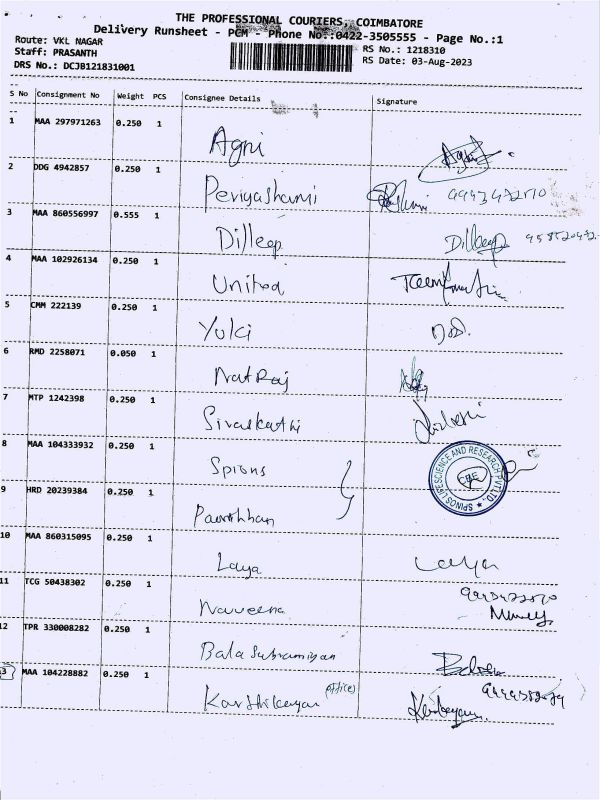 THE PROFESSIONAL COURIERS, COIMBATORE
Delivery Runsheet - PCM - Phone No::0422-3505555 - Page No.:1
Route: VKL NAGAR
RS No.: 1218310
Staff: PRASANTH
RS Date: 03-Aug-2023
DRS No.: DCJB121831001
S No Consignment No Weight PCS Consignee Details Signature
1 MAA 297971263 0.250 1 Agni
2 DDG 4942857 0.250 1 Periyashami
3 MAA 860556997 0.555 1 Dilleep Dilleep
4 MAA 102926134 0.250 1 United
5 CMM 222139 0.250 1 Yuki
6 RMD 2258071 0.050 1 Nat Raj
7 MTP 1242398 0.250 1 Sivasakthi
8 MAA 104333932 0.250 1 Spions
SPINOS LIFESCIENCE AND RESEARCH PVT.LTD. CBE
9 HRD 20239384 0.250 1
10 MAA 860315095 0.250 1 Laya Laya
11 TCG 50438302 0.250 1 Naveena
12 TPR 330008282 0.250 1 Bala Subramiyan
13 MAA 104228882 0.250 1 Karthikeyan (office)